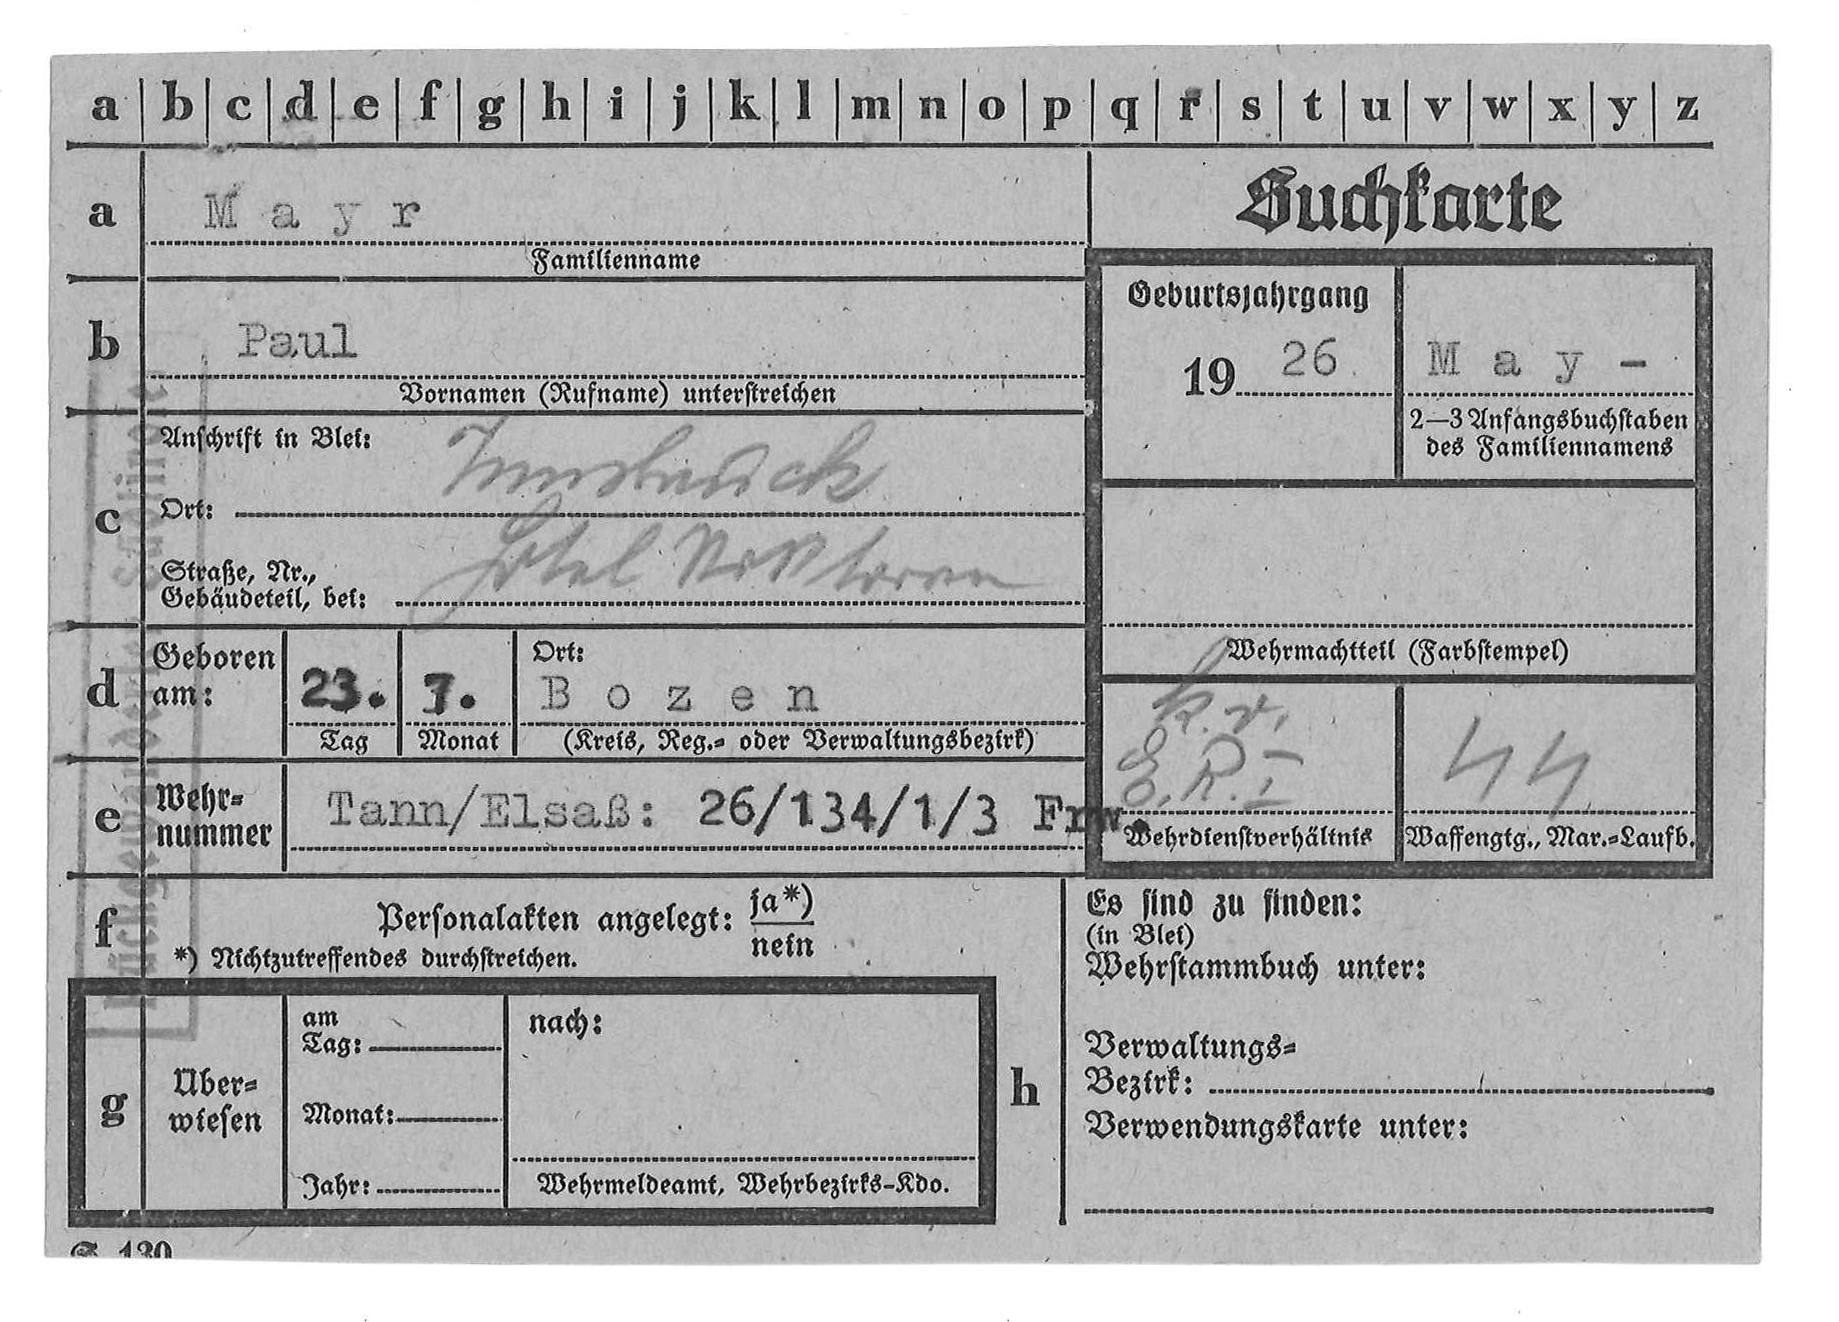 a b c d e f g h i j k l m n o p q r s t u v w x y z
Suchkarte
a
Mayr
Familienname
b
Paul
Vornamen (Rufname) unterstreichen
Geburtsjahrgang
1926
May-
2—3 Anfangsbuchstaben
des Familiennamens
c
Anschrift in Blei:
Innsbruck
Ort:
Hotel
Straße, Nr.,
Gebäudeteil, bei:
Wehrmachtteil (Farbstempel)
d
Geboren
am:
23.
7.
Ort:
Bozen
Tag
Monat
(Kreis, Reg.- oder Verwaltungsbezirk)
k.v.
E.R.I
Wehrdienstverhältnis
ϟϟ
Waffengtg., Mar.-Laufb.
e
Wehr-
nummer
Tann/Elsaß: 26/134/1/3 Frw.
f
Personalakten angelegt: ja*)
nein
*) Nichtzutreffendes durchstreichen.
g
Über-
wiesen
am
Tag:
Monat:
Jahr:
nach:
Wehrmeldeamt, Wehrbezirks-Kdo.
h
Es sind zu finden:
(in Blei)
Wehrstammbuch unter:
Verwaltungs-
Bezirk:
Verwendungskarte unter:
Rückgewanderter Südtiroler